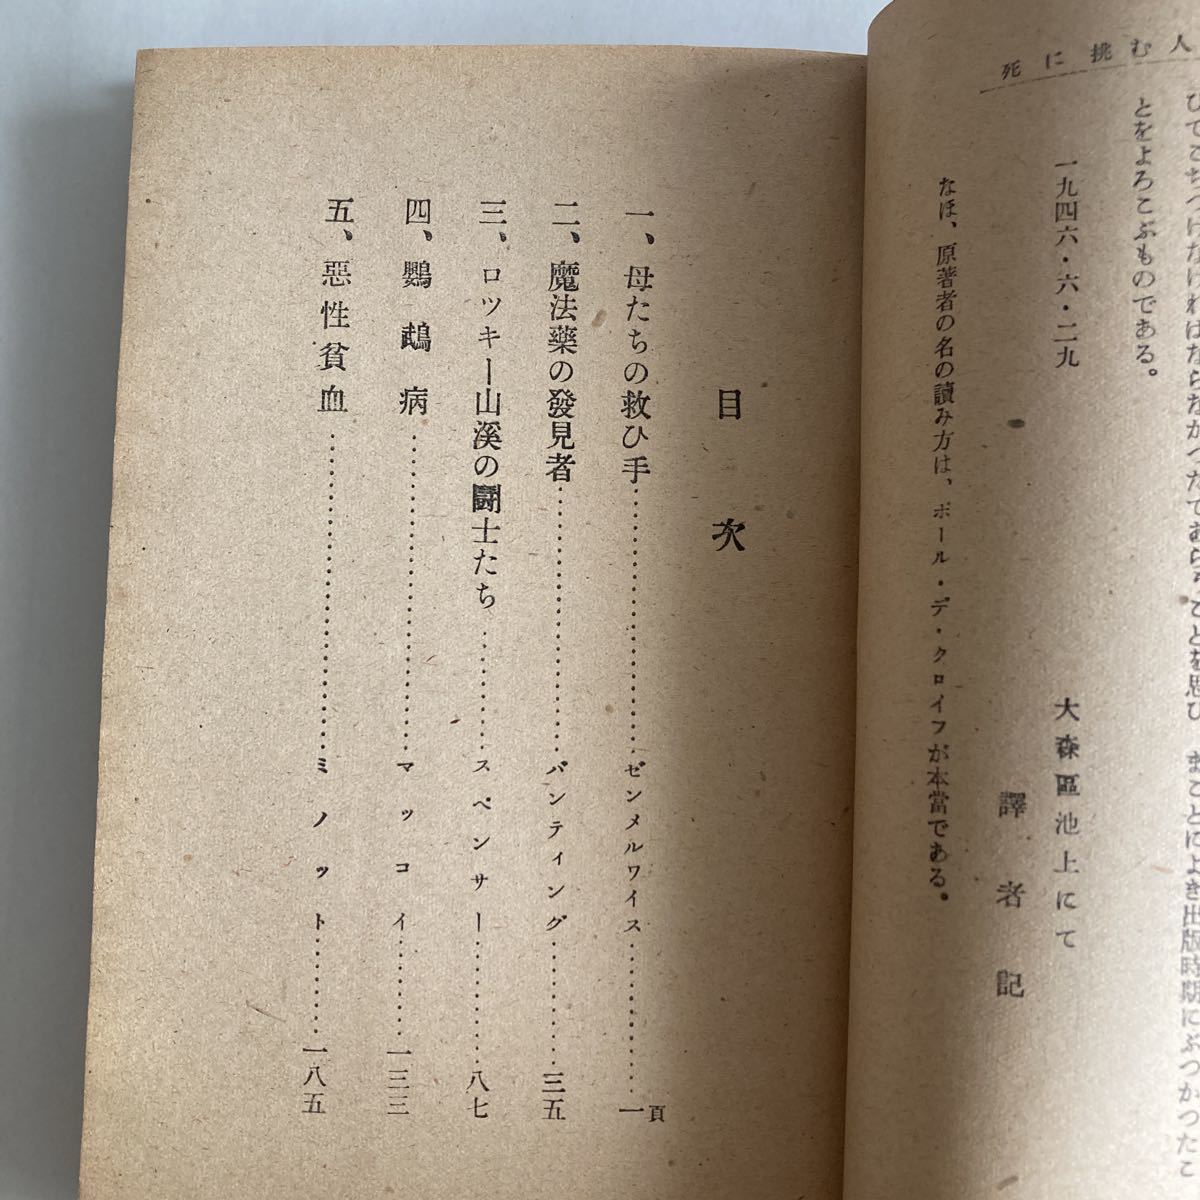 死に挑む人
ひてこぢつけなければならなかつたであらうことを思ひ、まことによき出版時期にぶつかつたこ
とをよろこぶものである。
一九四六・六・二九
大森區池上にて
譯者記
なほ、原著者の名の讀み方は、ポール・デ・クロイフが本當である。
目次
一、母たちの救ひ手……ゼンメルワイス……一頁
二、魔法藥の發見者……バンティング……三五
三、ロツキー山溪の鬪士たち……スペンサー……八七
四、鸚鵡病……マッコイ……一三三
五、惡性貧血……ミノット……一八五